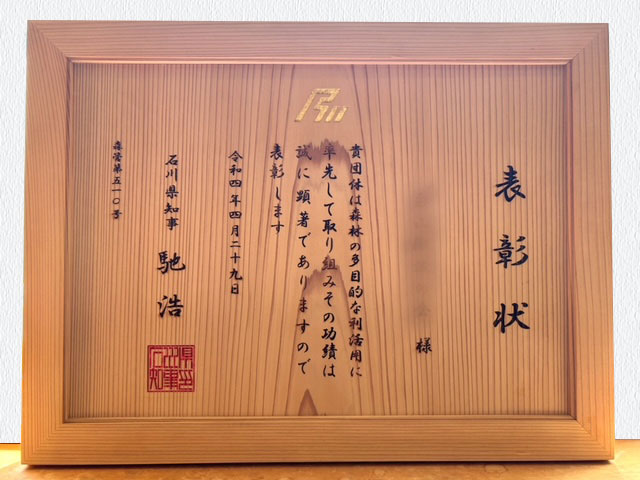 表彰状
様
貴団体は森林の多目的な利活用に
率先して取り組みその功績は
誠に顕著でありますので
表彰します
令和四年四月二十九日
石川県知事 馳浩
森管第五一〇号